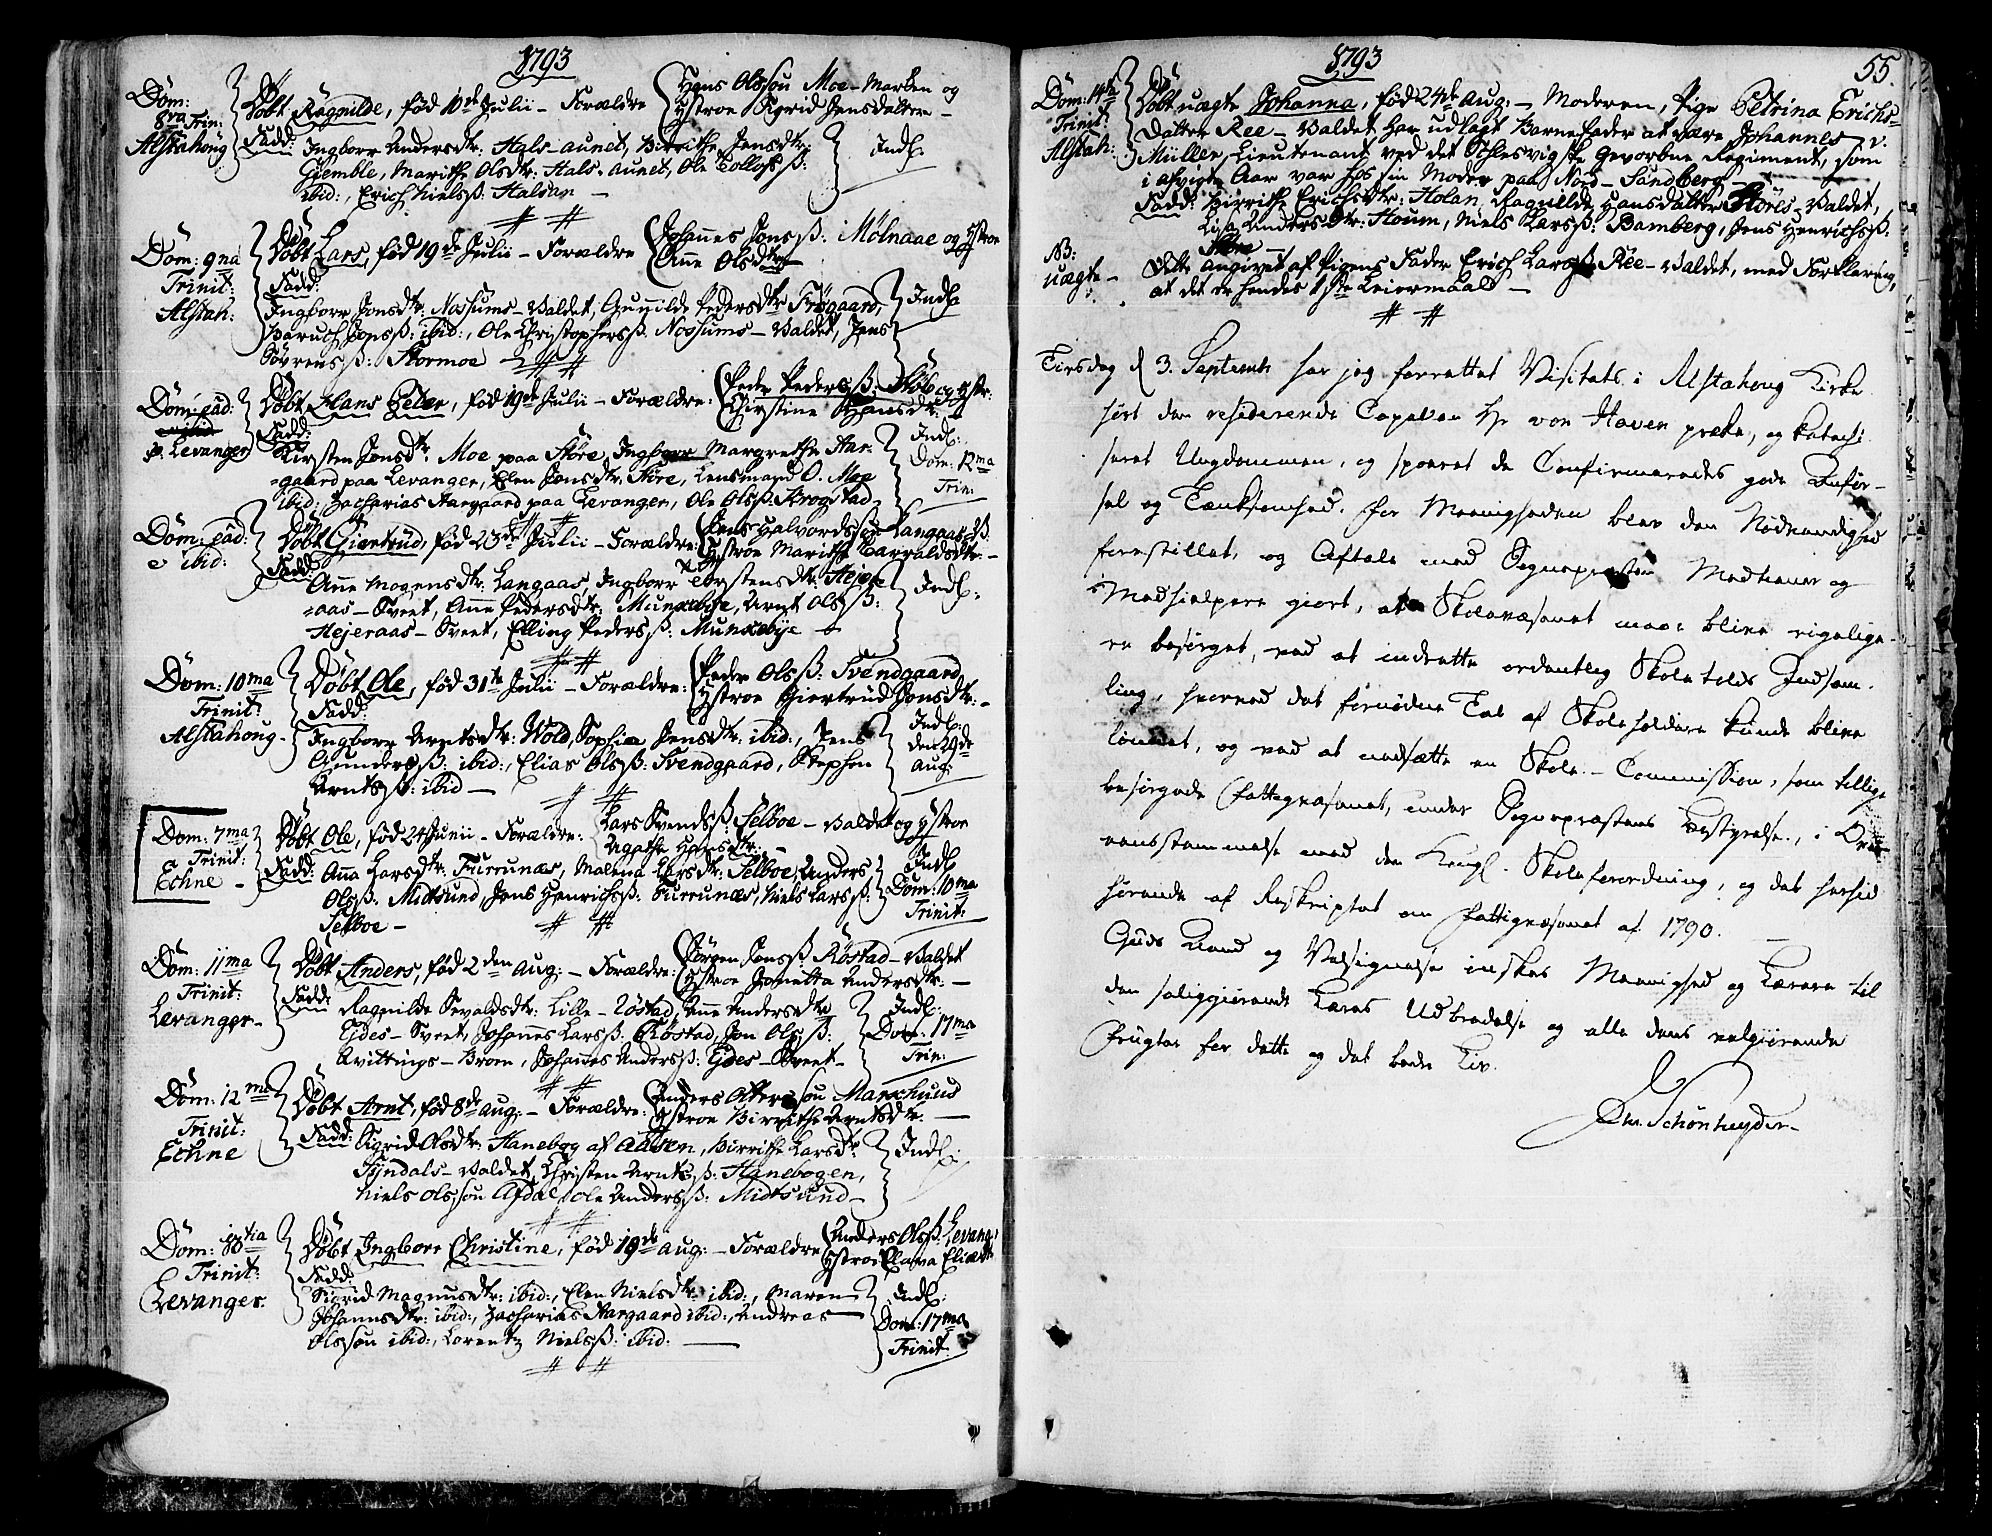 1793
Dom: 8va Trin: Alstahoug
Døbt Ragnilde, fød 10de Julii – Forældre Hans Olssøn Moe – Marken og
Hstroe Sigrid Jensdatter –
Fadd: Ingborr Andersdtr: Hals-aunet, Birrithe Jensdtr:
Giemble, Marithe Olsdtr: Hals-aunet, Ole Tollofsß:
ibid:, Erich Nielsß: Halsan – Indl:
Dom: 9na Trinit: Alstah:
Døbt Lars, fød 19de Julii – Forældre Johannes Jonsß: Molnaae og Hstroe
Anne Olsdtr
Fadd:
Ingborr Jonsdtr: Nossums-Valdet, Gunnilde Pedersdtr Frøgaard, Indl:
Baruch Jonsß: ibid:, Ole Christophersß: Nossums-Valdet, Jens
Søvrensß: Stormoe –
Dom: ead: p. Levanger
Døbt Hans Peter, fød 19de Julii – Forældre: Peder Pedersß: Støre og Hstr:
Christine Hansdtr: –
Fadd:
Kirsten Jonsdtr: Moe paa Støre, Ingborr Margrethe Aar-
gaard paa Levanger, Elen Jensdtr: Støre, Lensmand O. Moe
ibid:, Zacharias Aargaard paa Levanger, Ole Olsß: Skrogstad
Indl: Dom: 12ma Trin:
Dom: ead: e ibid:
Døbt Giertrud, fød 23de Julii – Forældre: Jens Halvordssøn Langaas og
Hstroe Marithe Harraldsdtr: –
Fadd:
Anne Mogensdtr: Langaas, Ingborr Torstensdtr: Hejer-
aas-Sveet, Anne Pedersdtr: Munkebye, Arnt Olsß:
Hejeraas-Sveet, Elling Pedersß: Munkebye – Indl:
Dom: 10ma Trinit: Alstahoug –
Døbt Ole, fød 31te Julii – Forældre: Peder Olsß: Svendgaard
Hstroe Giertrud Jonsdtr: –
Fadd:
Ingborr Arntsdtr: Wold, Sophia Jensdtr: ibid:, Jens
Gundersß: ibid:, Elias Olsß: Svendgaard, Stephen
Arntsß: ibid – Indl: den 29de Aug:
Dom: 7ma Trinit: Echne –
Døbt Ole, fød 24 Junii – Forældre: Lars Svendsß: Selboe – Valdet og Hstroe
Agathe Hansdtr:
Fadd: Anna Larsdtr: Furrunæs, Malena Larsdtr: Selboe, Anders
Olsß: Midtsund, Jens Henrichsß: Furrunæs, Niels Larsß:
Selboe – Indl: Dom: 10ma Trinit:
Dom: 11ma Trinit: Levanger –
Døbt Anders, fød 2den Aug: – Forældre: Jørgen Jonsß: Røstad – Valdet
Hstroe Jonetta Andersdtr: –
Fadd: Ragnilde Sevaldsdtr: Lille-Røstad, Anne Andersdtr
Ejdes-Sveet, Johannes Larsß: Røstad, Jon Olsß:
Qvittings-Broen, Johannes Andersß: Ejdes-Sveet –
Indl: Dom: 17ma Trin:
Dom: 12ma Trinit: Echne
Døbt Arnt, fød 8de Aug: – Forældre: Anders Otterssøn Marschuus
Hstroe Birrithe Arntsdtr: –
Fadd: Sigrid Olsdtr: Hanebog af Aasen, Birrithe Larsdtr
Tyndals-Valdet, Christen Arntsß: Hanebogen,
Niels Olssøn Afdal, Ole Andersß: Midtsund – Indl:
Dom: Trinit: Levanger.
Døbt Ingborr Christine, fød 19de Aug: – Forældre Anders Olsß: Levang:
Hstroe Elava Eliæ
Fadd:
Sigrid Magnusdtr: ibid:, Elen Nielsdtr: ibid:, Maren
Johannsdtr: ibid:, Zacharias Aargaard ibid:, Andreas
Olssøn ibid:, Lorentz Nielsß: ibid: –
Indl: Dom: 17ma Trinit:
1793
55.
Dom: 14de Trinit: Alstah:
Døbt uægte Johanna, fød 24de Aug: – Moderen, Pige Petrina Erichs-
datter Ree-Valdet har udlagt Barnefader at være Johannes v.
Müller, Lieutenant ved det Schlesvigske Gevorbne Regiment, som
i afvigte Aar var hos sin Moder paa Nord-Sundberg –
Fadd: Birrithe Erichsdtr: Holan, Ragnilde Hansdatter Støres-Valdet,
Lisa Andersdtr: Houm, Niels Larsß: Bamberg, Jens Henrichsß:
NB: uægte –
Dette angivet af Pigens Fader Erich Larsß: Ree-Valdet, med Forklaring,
at det er hendes 1ste Leiermaal –
Tirsdag d. 3. Septembr har jeg forrettet Visitats i Alstahoug Kirke
hørt den residerende Capellan Hr von Haven præke, og katechi-
seret Ungdommen, og sporet de Confirmeredes gode Anfør-
sel og Tænksomhed. For Meenigheden blev den Nødvendighed
forestillet, og Aftale med Sognepræsten Medtiener og
Medhielpere giort, at Skolevæsenet maae blive rigelige-
re besørget, ved at indrette ordentlig Skoleholds Indsam-
ling, hvorved det fornødne Tal af Skoleholdere kunde blive
lønnet, og ved at nedsætte en Skole-Commission, som tillige
besørgede Fattigvæsenet, under Sognepræstens Bestyrelse, i Over-
eensstemmelse med den Kongl. Skoleforordning, og det herhid
hørende af Reskriptet om Fattigvæsenet af 1790. –
Guds Naade og Velsignelse ønskes Meenighed og Lærere til
den saliggiørende Læres Udbredelse og alle dens velgiørende
Frugter for dette og det bedre Liv.
Chr. Schønheyder –